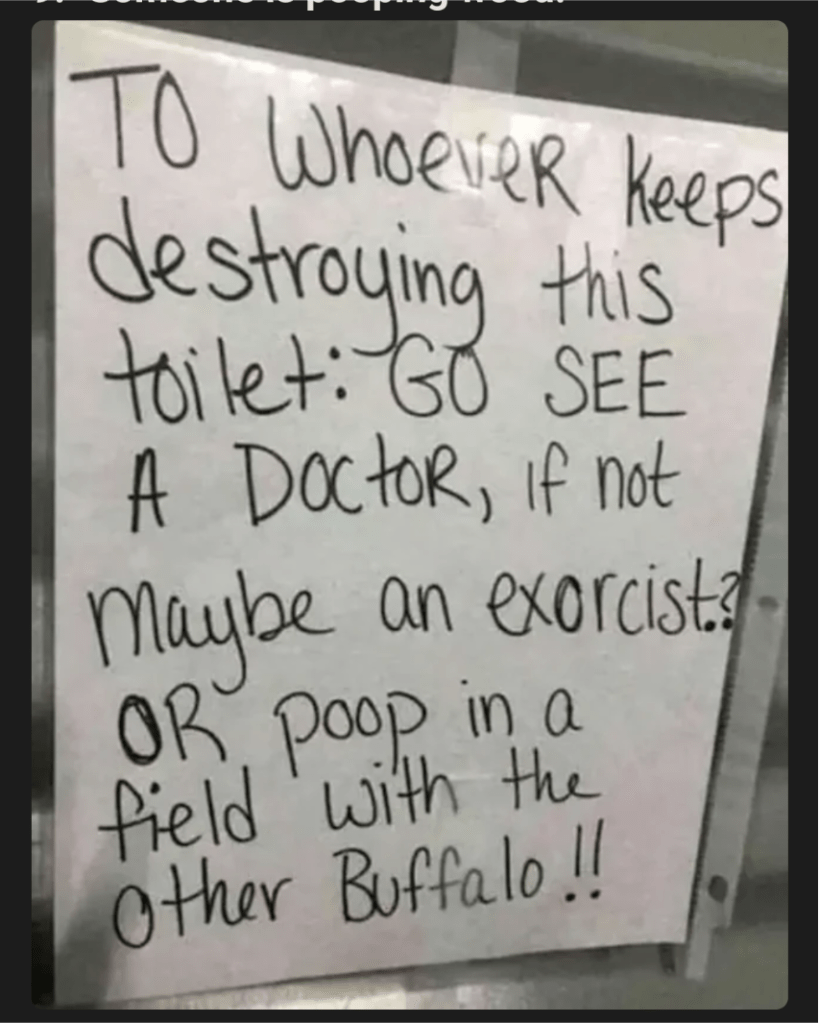 TO Whoever keeps
destroying this
toilet: GO SEE
A DOCtoR, if not
Maybe an exorcist.?
OR poop in a
field with the
other Buffalo!!